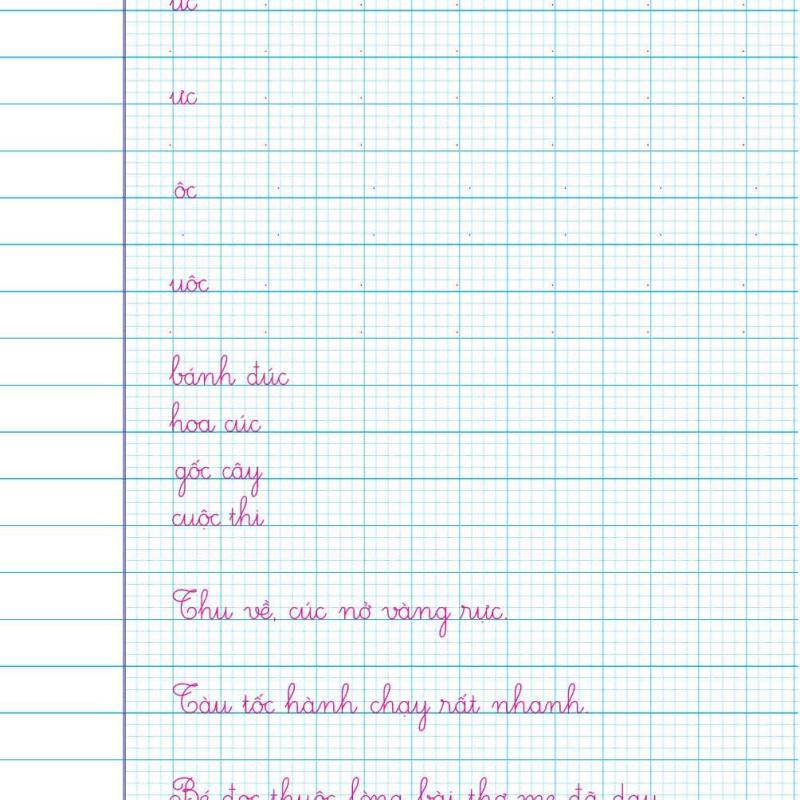 uc
ưc
ôc
uôc
bánh đúc
hoa cúc
gốc cây
cuộc thi
Thu về, cúc nở vàng rực.
Tàu tốc hành chạy rất nhanh.
Bé đọc thuộc lòng bài thơ mẹ đã dạy